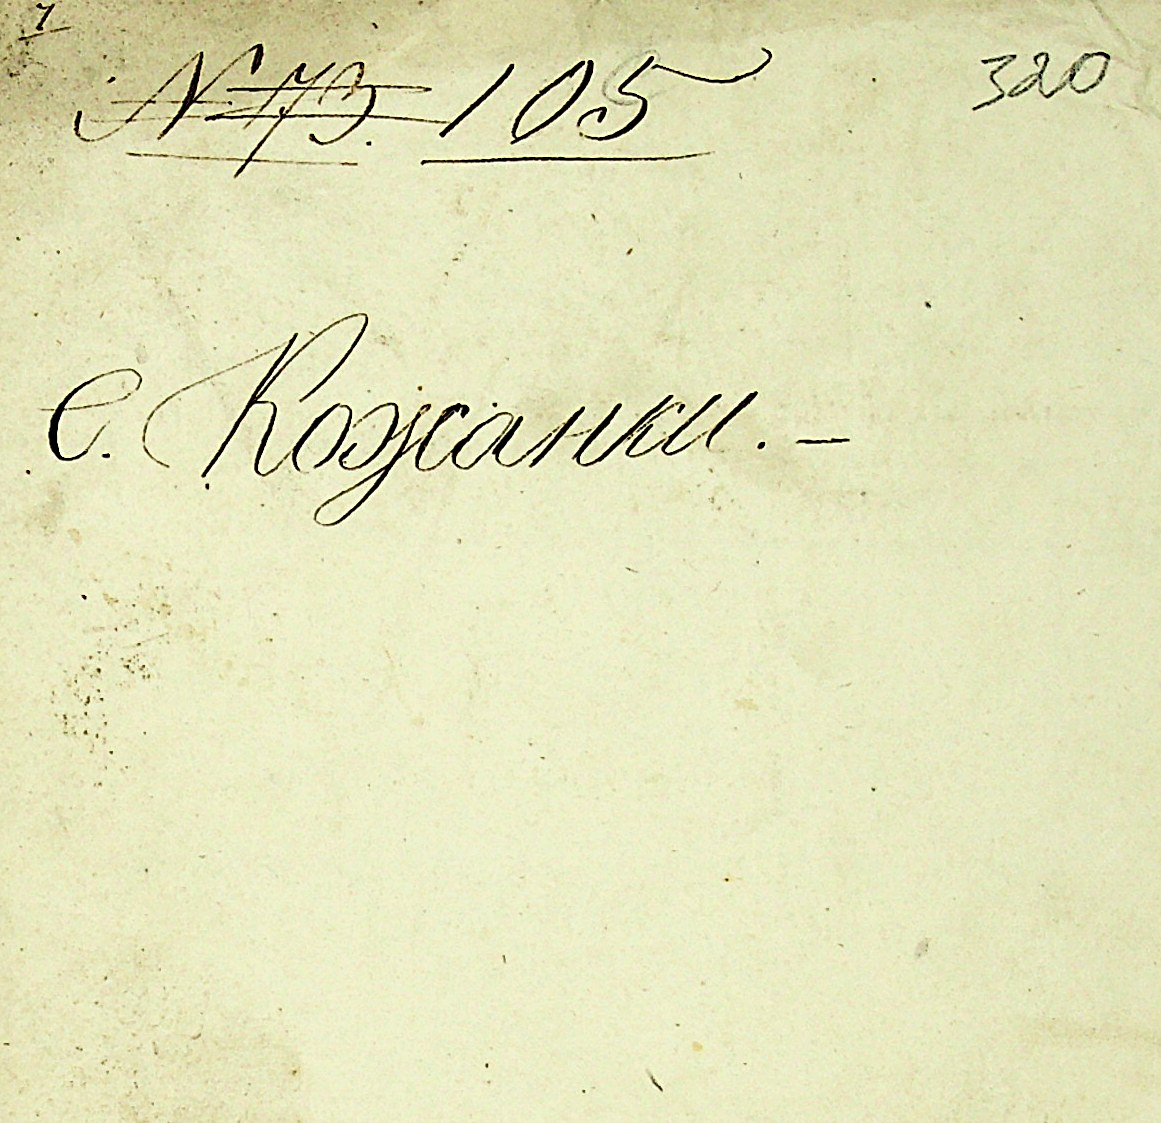 № 73. 105
320
с. Кожанки. —